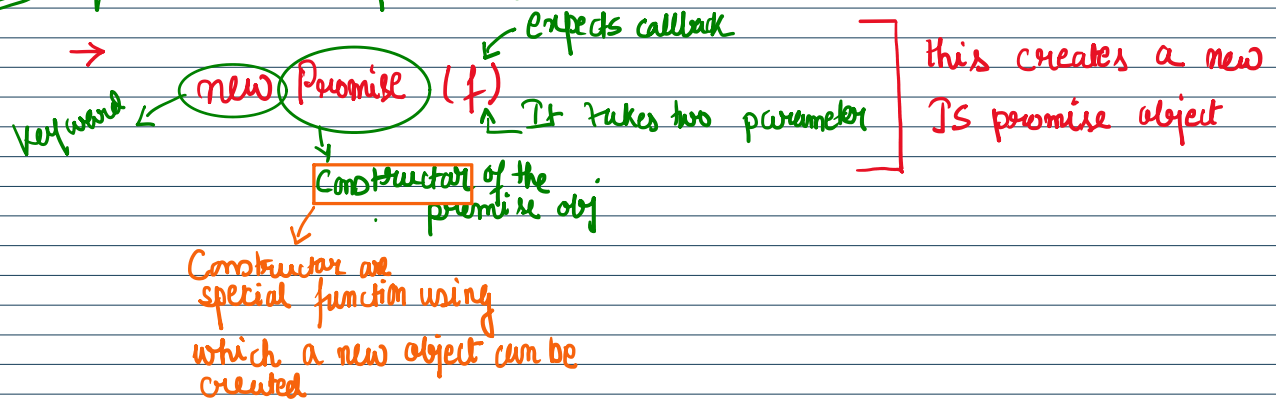 expects callback
→ new Promise (f)
keyword
It takes two parameter
this creates a new
JS promise object
Constructor of the
promise obj
Constructor are
special function using
which a new object can be
created